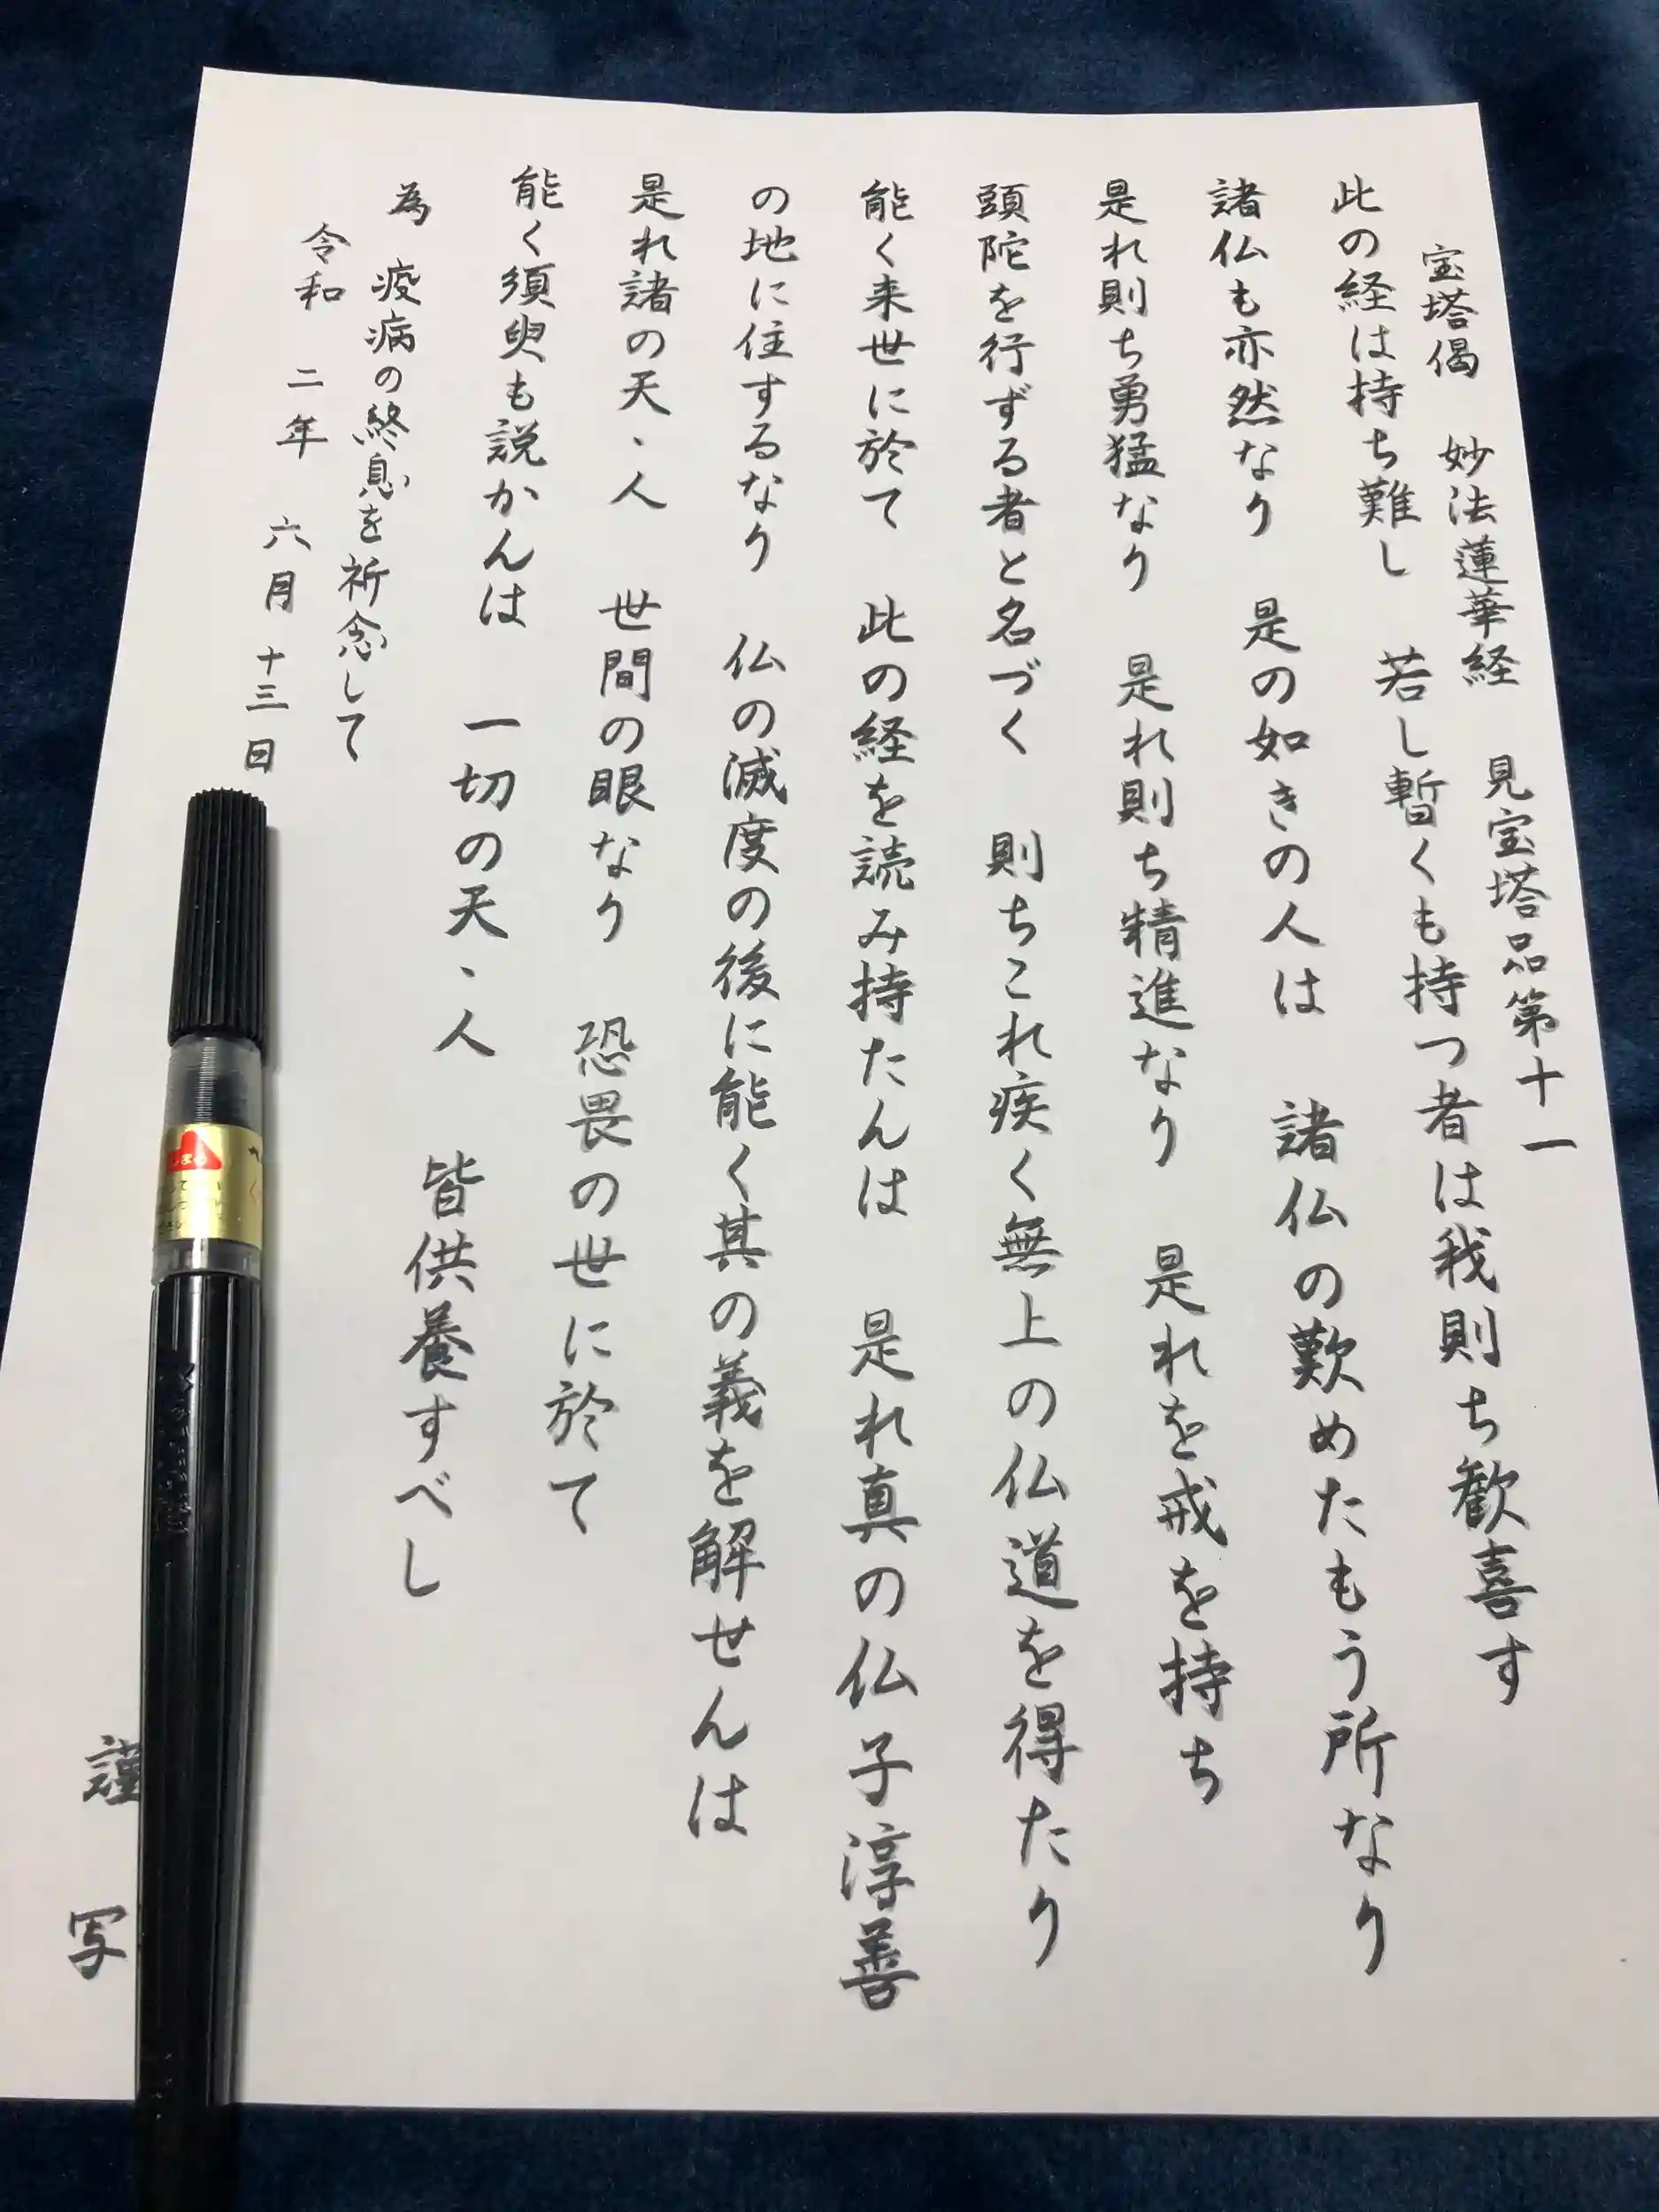 宝塔偈 妙法蓮華経 見宝塔品第十一
此の経は持ち難し 若し暫くも持つ者は我則ち歓喜す
諸仏も亦然なり 是の如きの人は 諸仏の歎めたもう所なり
是れ則ち勇猛なり 是れ則ち精進なり 是れを戒を持ち
頭陀を行ずる者と名づく 則ちこれ疾く無上の仏道を得たり
能く来世に於て 此の経を読み持たんは 是れ真の仏子淳善
の地に住するなり 仏の滅度の後に能く其の義を解せんは
是れ諸の天、人 世間の眼なり 恐畏の世に於て
能く須臾も説かんは 一切の天、人 皆供養すべし
為 疫病の終息を祈念して
令和 二年 六月 十三日
謹 写